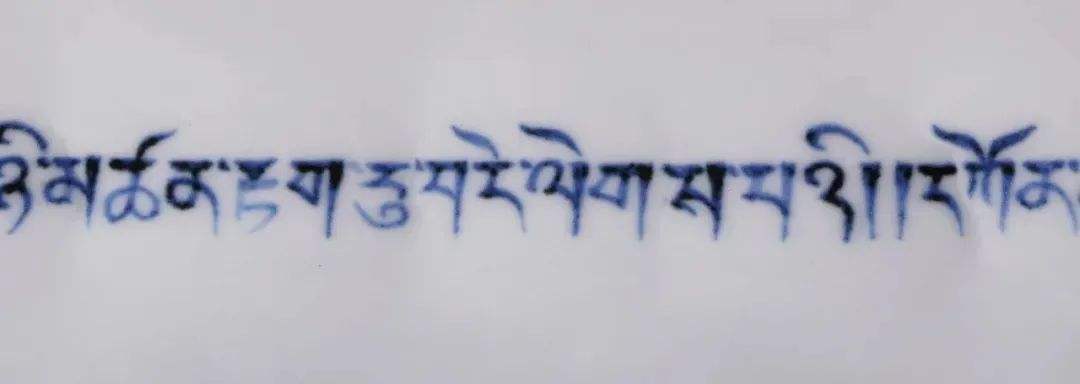 ཉིན་མཚན་རྟག་ཏུ་བདེ་ལེགས་པའི།།དཀོན